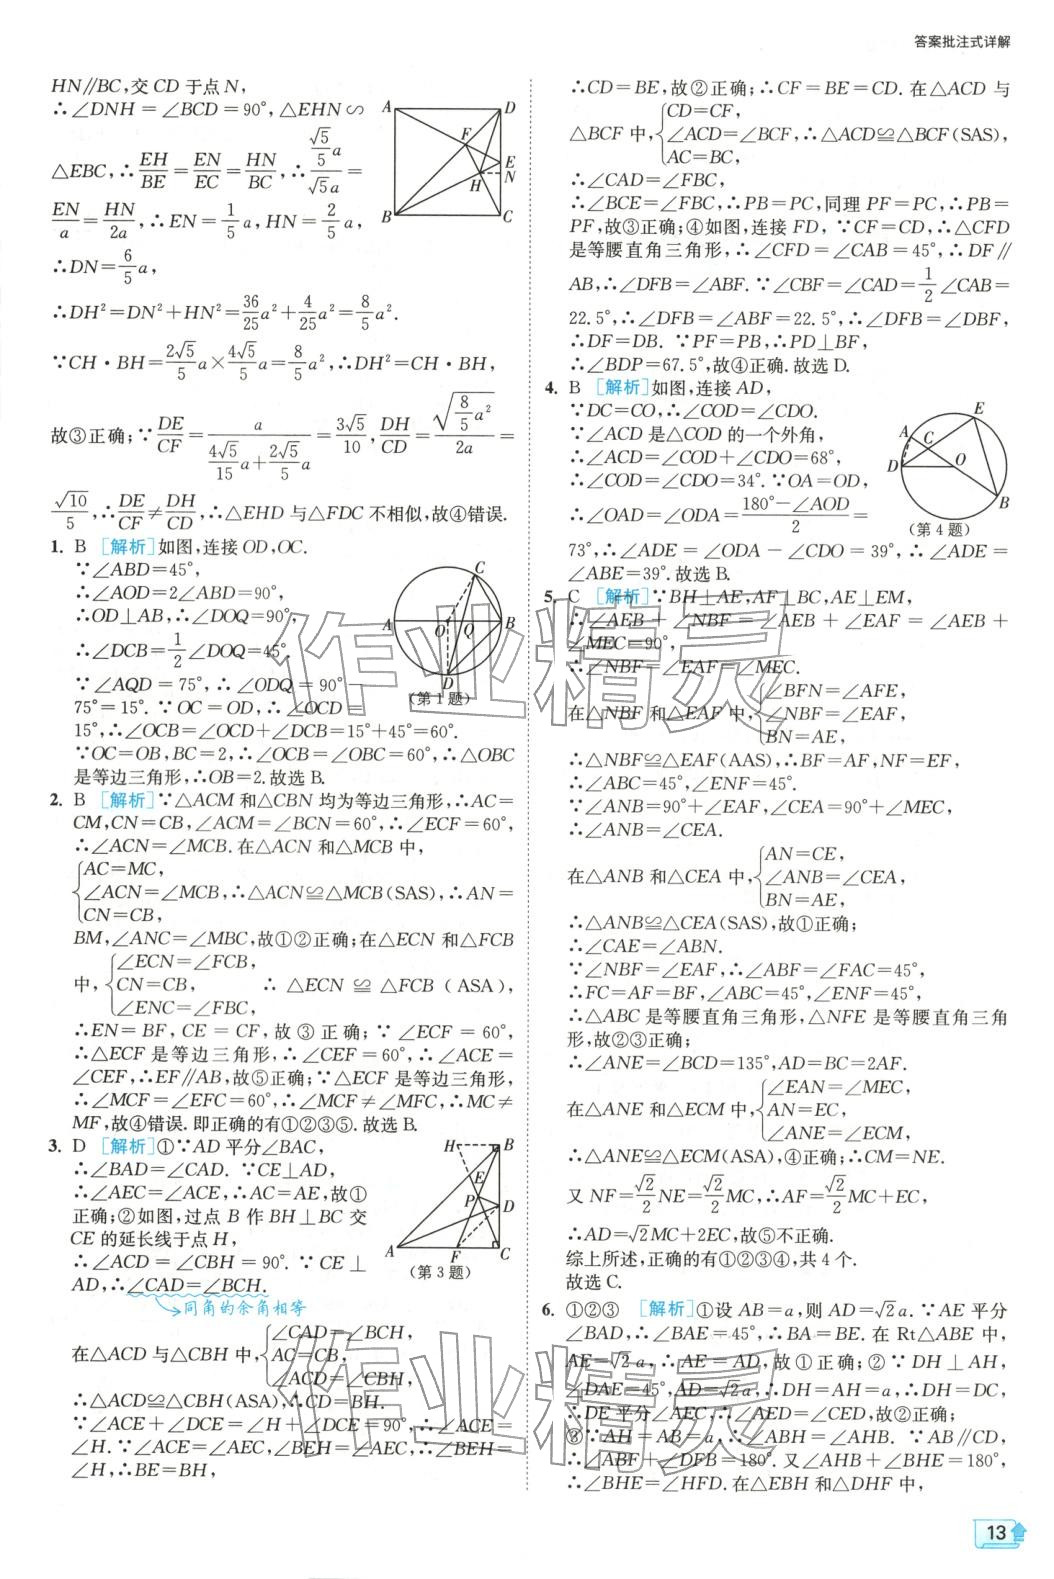 答案批注式详解
HN∥BC,交 CD 于点 N,
∴∠DNH=∠BCD=90°,△EHN∽
△EBC,∴EH/BE=EN/EC=HN/BC,∴(√5/5 a)/(√5a)=
EN/a=HN/2a,∴EN=1/5 a,HN=2/5 a,
∴DN=6/5 a,
∴DH²=DN²+HN²=36/25 a²+4/25 a²=8/5 a².
∵CH·BH=2√5/5 a×4√5/5 a=8/5 a²,∴DH²=CH·BH,
故③正确;∵DE/CF=a/(4√5/15 a+2√5/5 a)=3√5/10,DH/CD=√(8/5 a²)/2a=
√10/5,∴DE/CF≠DH/CD,∴△EHD 与△FDC 不相似,故④错误.
A D F E H N B C
1. B [解析]如图,连接 OD,OC.
∵∠ABD=45°,
∴∠AOD=2∠ABD=90°,
∴OD⊥AB,∴∠DOQ=90°,
∴∠DCB=1/2∠DOQ=45°.
∵∠AQD=75°,∴∠ODQ=90°
75°=15°. ∵OC=OD,∴∠OCD=
15°,∴∠OCB=∠OCD+∠DCB=15°+45°=60°.
∵OC=OB,BC=2,∴∠OCB=∠OBC=60°,∴△OBC
是等边三角形,∴OB=2.故选 B.
C A O Q B D
(第 1 题)
2. B [解析]∵△ACM 和△CBN 均为等边三角形,∴AC=
CM,CN=CB,∠ACM=∠BCN=60°,∴∠ECF=60°,
∴∠ACN=∠MCB.在△ACN 和△MCB 中,
{AC=MC,
∠ACN=∠MCB,∴△ACN≌△MCB(SAS),∴AN=
CN=CB,
BM,∠ANC=∠MBC,故①②正确;在△ECN 和△FCB
{∠ECN=∠FCB,
中, CN=CB, ∴△ECN≌△FCB(ASA),
∠ENC=∠FBC,
∴EN=BF,CE=CF,故③正确;∵∠ECF=60°,
∴△ECF 是等边三角形,∴∠CEF=60°,∴∠ACE=
∠CEF,∴EF∥AB,故⑤正确;∵△ECF 是等边三角形,
∴∠MCF=∠EFC=60°,∴∠MCF≠∠MFC,∴MC≠
MF,故④错误.即正确的有①②③⑤.故选 B.
3. D [解析]①∵AD 平分∠BAC,
∴∠BAD=∠CAD. ∵CE⊥AD,
∴∠AEC=∠ACE,∴AC=AE,故①
正确;②如图,过点 B 作 BH⊥BC 交
CE 的延长线于点 H,
∴∠ACD=∠CBH=90°. ∵CE⊥
AD,∴∠CAD=∠BCH.
同角的余角相等
H B E P D A F C
(第 3 题)
{∠CAD=∠BCH,
在△ACD 与△CBH 中, AC=CB,
∠ACD=∠CBH,
∴△ACD≌△CBH(ASA),∴CD=BH.
∵∠ACE+∠DCE=∠H+∠DCE=90°,∴∠ACE=
∠H.∵∠ACE=∠AEC,∠BEH=∠AEC,∴∠BEH=
∠H,∴BE=BH,
∴CD=BE,故②正确;∴CF=BE=CD.在△ACD 与
{CD=CF,
△BCF 中, ∠ACD=∠BCF,∴△ACD≌△BCF(SAS),
AC=BC,
∴∠CAD=∠FBC,
∴∠BCE=∠FBC,∴PB=PC,同理 PF=PC,∴PB=
PF,故③正确;④如图,连接 FD,∵CF=CD,∴△CFD
是等腰直角三角形,∴∠CFD=∠CAB=45°,∴DF∥
AB,∴∠DFB=∠ABF. ∵∠CBF=∠CAD=1/2∠CAB=
22.5°,∴∠DFB=∠ABF=22.5°,∴∠DFB=∠DBF,
∴DF=DB. ∵PF=PB,∴PD⊥BF,
∴∠BDP=67.5°,故④正确.故选 D.
4. B [解析]如图,连接 AD,
∵DC=CO,∴∠COD=∠CDO.
∵∠ACD 是△COD 的一个外角,
∴∠ACD=∠COD+∠CDO=68°,
∴∠COD=∠CDO=34°. ∵OA=OD,
∴∠OAD=∠ODA=(180°-∠AOD)/2=
73°,∴∠ADE=∠ODA-∠CDO=39°,∴∠ADE=
∠ABE=39°.故选 B.
E A C D O B
(第 4 题)
5. C [解析]∵BH⊥AE,AF⊥BC,AE⊥EM,
∴∠AEB+∠NBF=∠AEB+∠EAF=∠AEB+
∠MEC=90°,
∴∠NBF=∠EAF=∠MEC.
{∠BFN=∠AFE,
在△NBF 和△EAF 中, ∠NBF=∠EAF,
BN=AE,
∴△NBF≌△EAF(AAS),∴BF=AF,NF=EF,
∴∠ABC=45°,∠ENF=45°.
∵∠ANB=90°+∠EAF,∠CEA=90°+∠MEC,
∴∠ANB=∠CEA.
{AN=CE,
在△ANB 和△CEA 中, ∠ANB=∠CEA,
BN=AE,
∴△ANB≌△CEA(SAS),故①正确;
∴∠CAE=∠ABN.
∵∠NBF=∠EAF,∴∠ABF=∠FAC=45°,
∴FC=AF=BF,∠ABC=45°,∠ENF=45°,
∴△ABC 是等腰直角三角形,△NFE 是等腰直角三角
形,故②③正确;
∴∠ANE=∠BCD=135°,AD=BC=2AF.
{∠EAN=∠MEC,
在△ANE 和△ECM 中, AN=EC,
∠ANE=∠ECM,
∴△ANE≌△ECM(ASA),④正确;∴CM=NE.
又 NF=√2/2 NE=√2/2 MC,∴AF=√2/2 MC+EC,
∴AD=√2MC+2EC,故⑤不正确.
综上所述,正确的有①②③④,共 4 个.
故选 C.
6. ①②③ [解析]①设 AB=a,则 AD=√2a. ∵AE 平分
∠BAD,∴∠BAE=45°,∴BA=BE.在 Rt△ABE 中,
AE=√2a,∴AE=AD,故①正确;②∵DH⊥AH,
∠DAE=45°,AD=√2a,∴DH=AH=a,∴DH=DC,
∴DE 平分∠AEC,∴∠AED=∠CED,故②正确;
③∵AH=AB=a,∴∠ABH=∠AHB. ∵AB∥CD,
∴∠ABF+∠DFB=180°.又∠AHB+∠BHE=180°,
∴∠BHE=∠HFD.在△EBH 和△DHF 中,
作业精灵
作业精灵
13